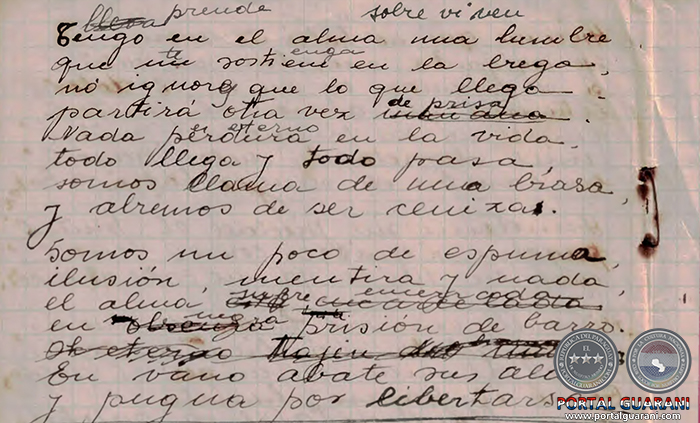 lleva prende sobre viven
Tengo en el alma una lumbre
te enga
que me sostiene en la brega,
nó ignoro que lo que llega
de prisa
partirá otra vez
es eterno
Nada perdura en la vida,
todo llega y todo pasa,
somos llama de una brasa,
y abremos de ser ceniza.
Somos un poco de espuma,
ilusión, mentira y nada,
sufre encerrada
el alma
negra
en obscura prisión de barro.
En vano abate sus
y pugna por libertarse
PORTAL GUARANI
www.portalguarani.com